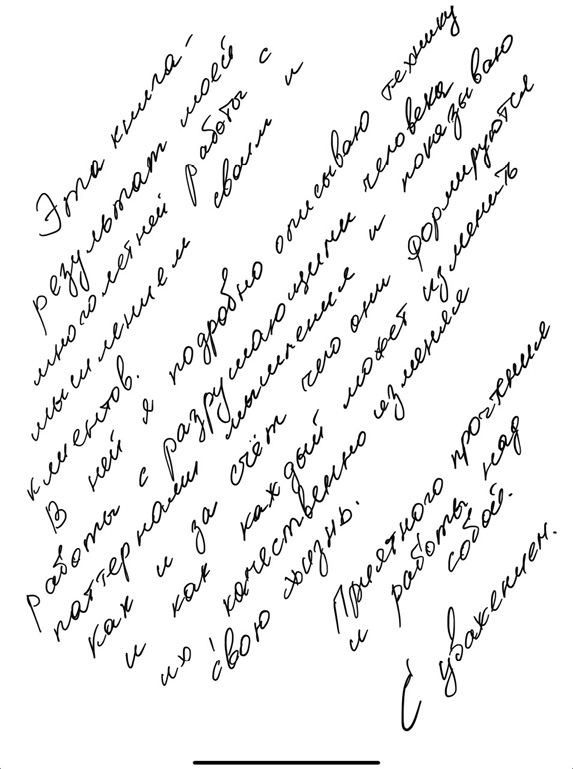 Эта книга-
результат моей
многолетней работы с
мышлением своим и
клиентов.
В ней я подробно описываю технику
работы с разрушающими человека
паттернами мышления и показываю
как и за счёт чего они формируются
и как каждый может изменить
их качественно изменяя
свою жизнь.
Приятного прочтения
и работы над
собой.
С уважением.